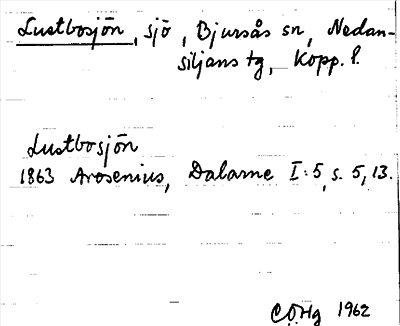 Lustbosjön, sjö, Bjursås sn, Nedan-
siljans tg, Kopp. l.
Lustbosjön
1863 Arosenius, Dalarne I:5, s. 5, 13.
CÖHg 1962